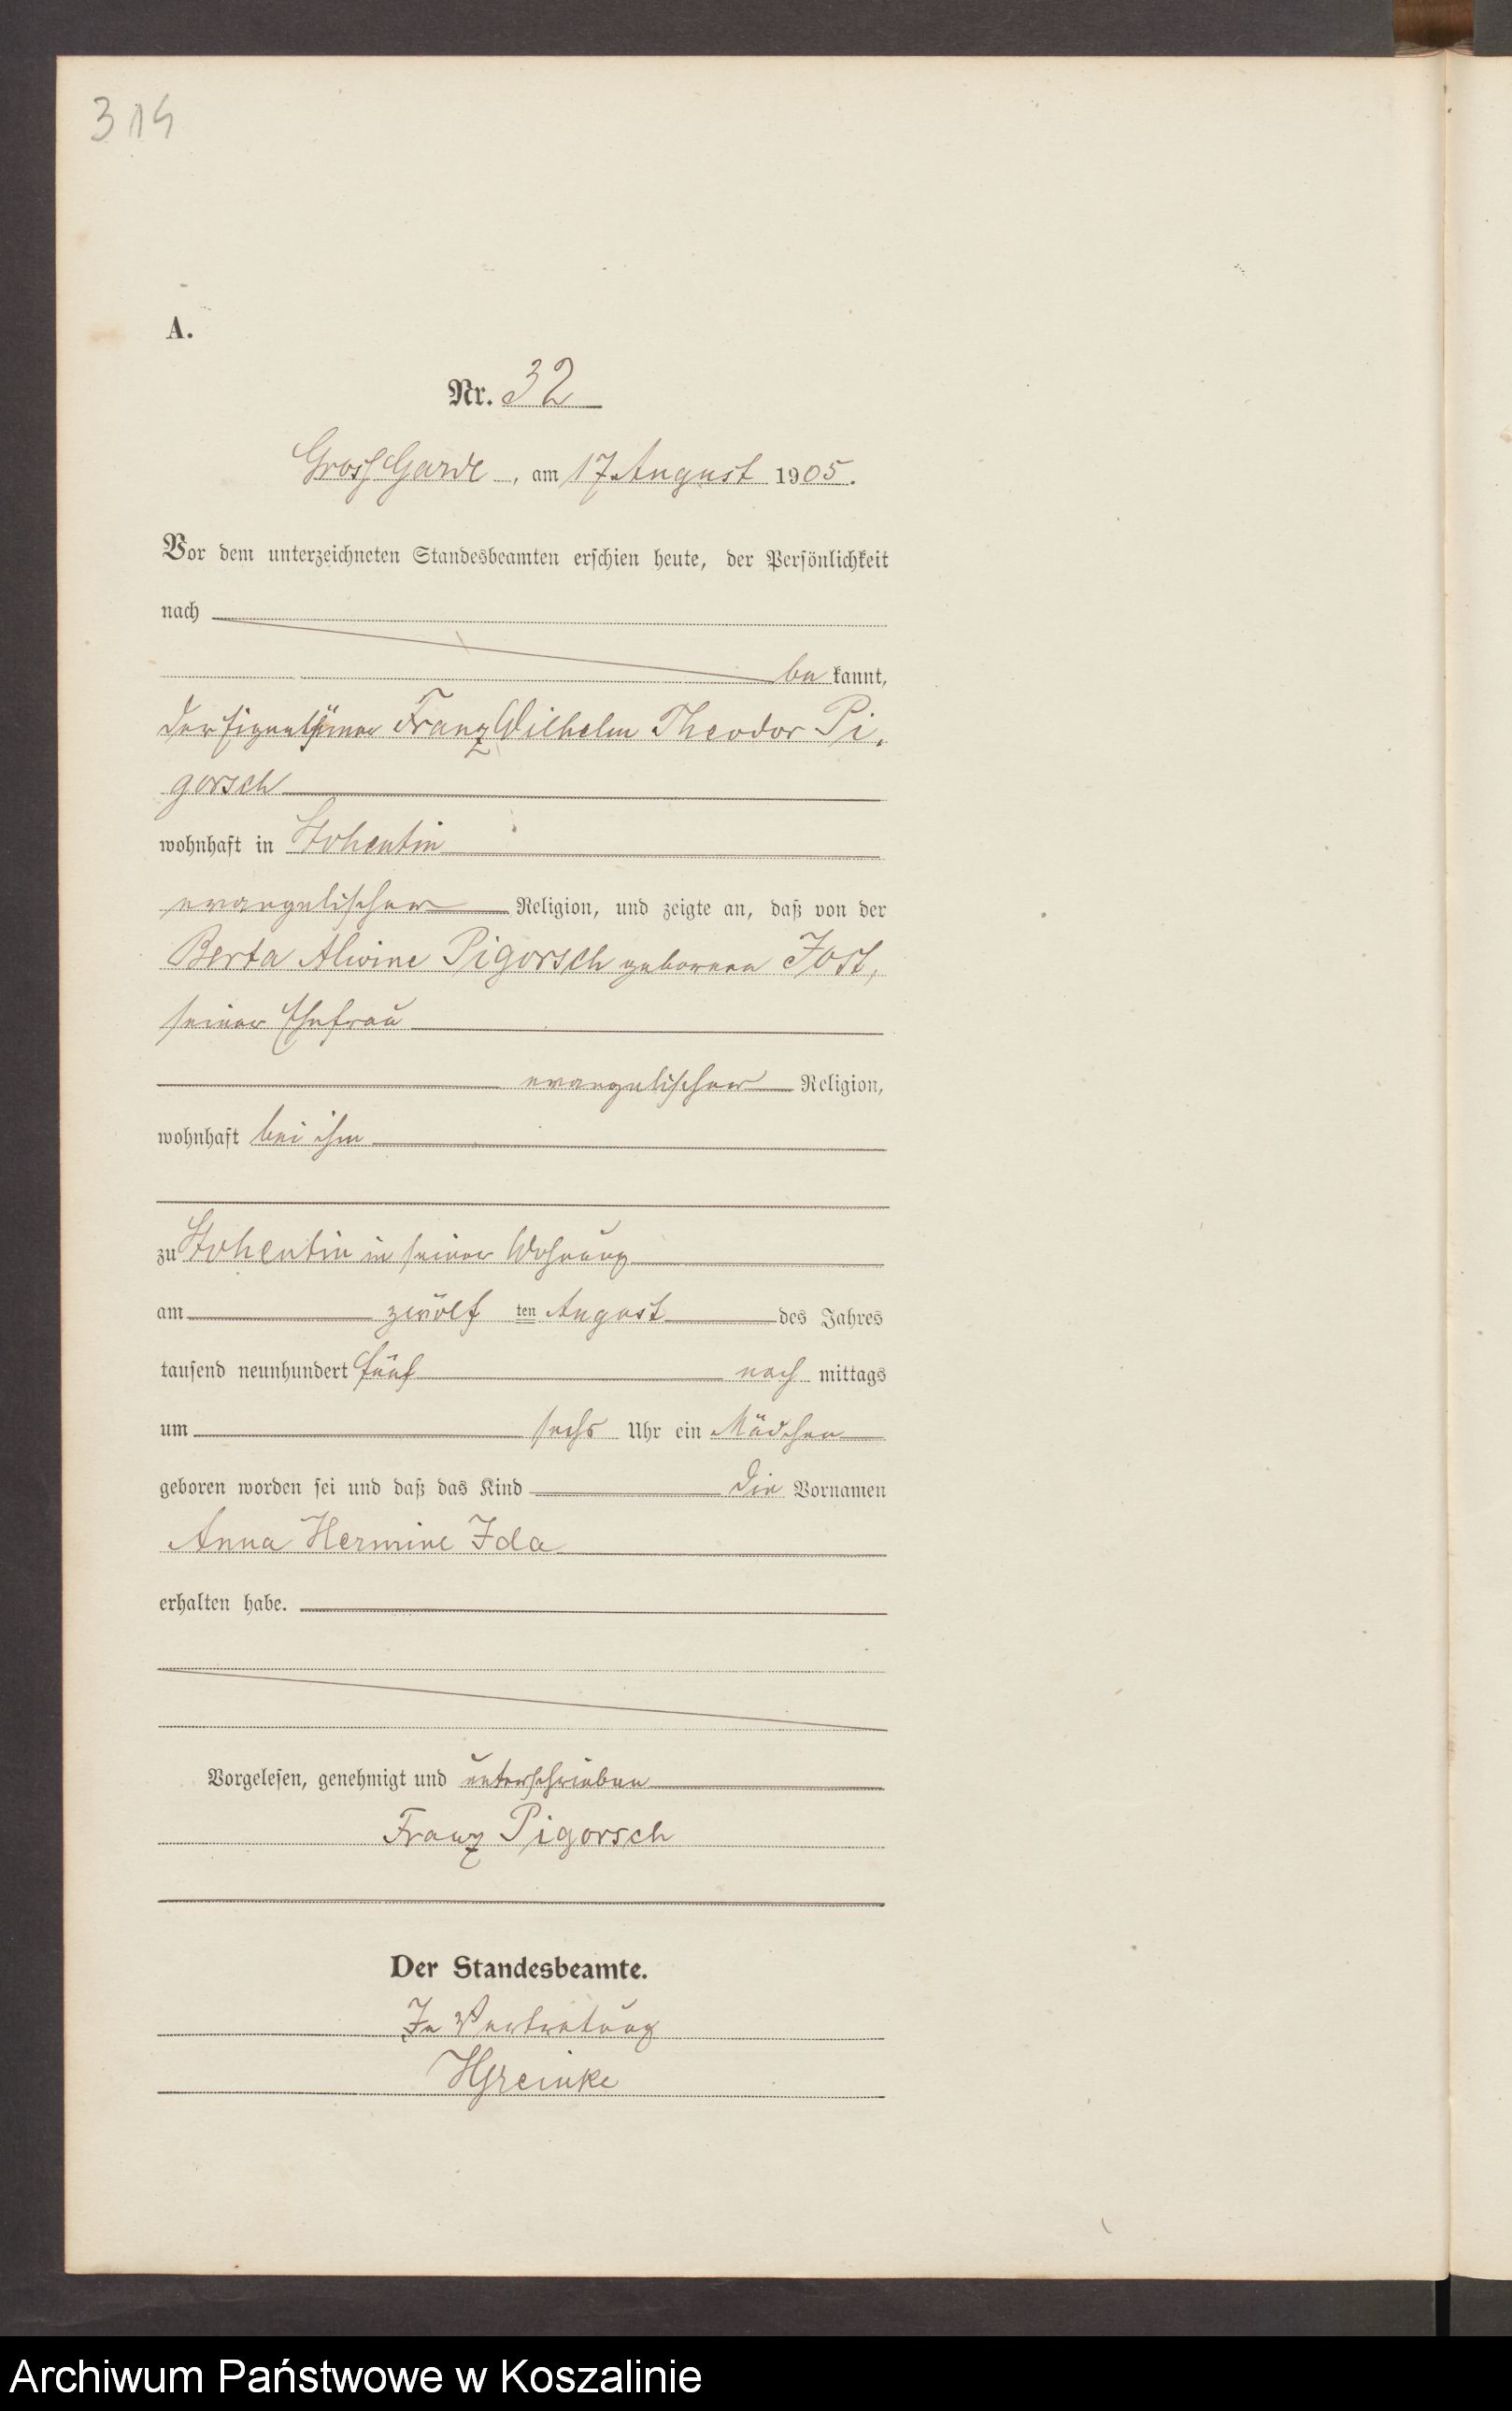 314
A.
Nr. 32
Gross Garde, am 17 August 1905.
Vor dem unterzeichneten Standesbeamten erschien heute, der Persönlichkeit
nach
be kannt,
der Eigenthümer Franz Wilhelm Theodor Pi-
gorsch
wohnhaft in Stohentin
evangelischer Religion, und zeigte an, daß von der
Berta Alwine Pigorsch geborenen Jost,
seiner Ehefrau
evangelischer Religion,
wohnhaft bei ihm
zu Stohentin in seiner Wohnung
am zwölf ten August des Jahres
tausend neunhundert fünf nach mittags
um sechs Uhr ein Mädchen
geboren worden sei und daß das Kind die Vornamen
Anna Hermine Ida
erhalten habe.
Vorgelesen, genehmigt und unterschrieben
Franz Pigorsch
Der Standesbeamte.
In Vertretung
Archiwum Państwowe w Koszalinie